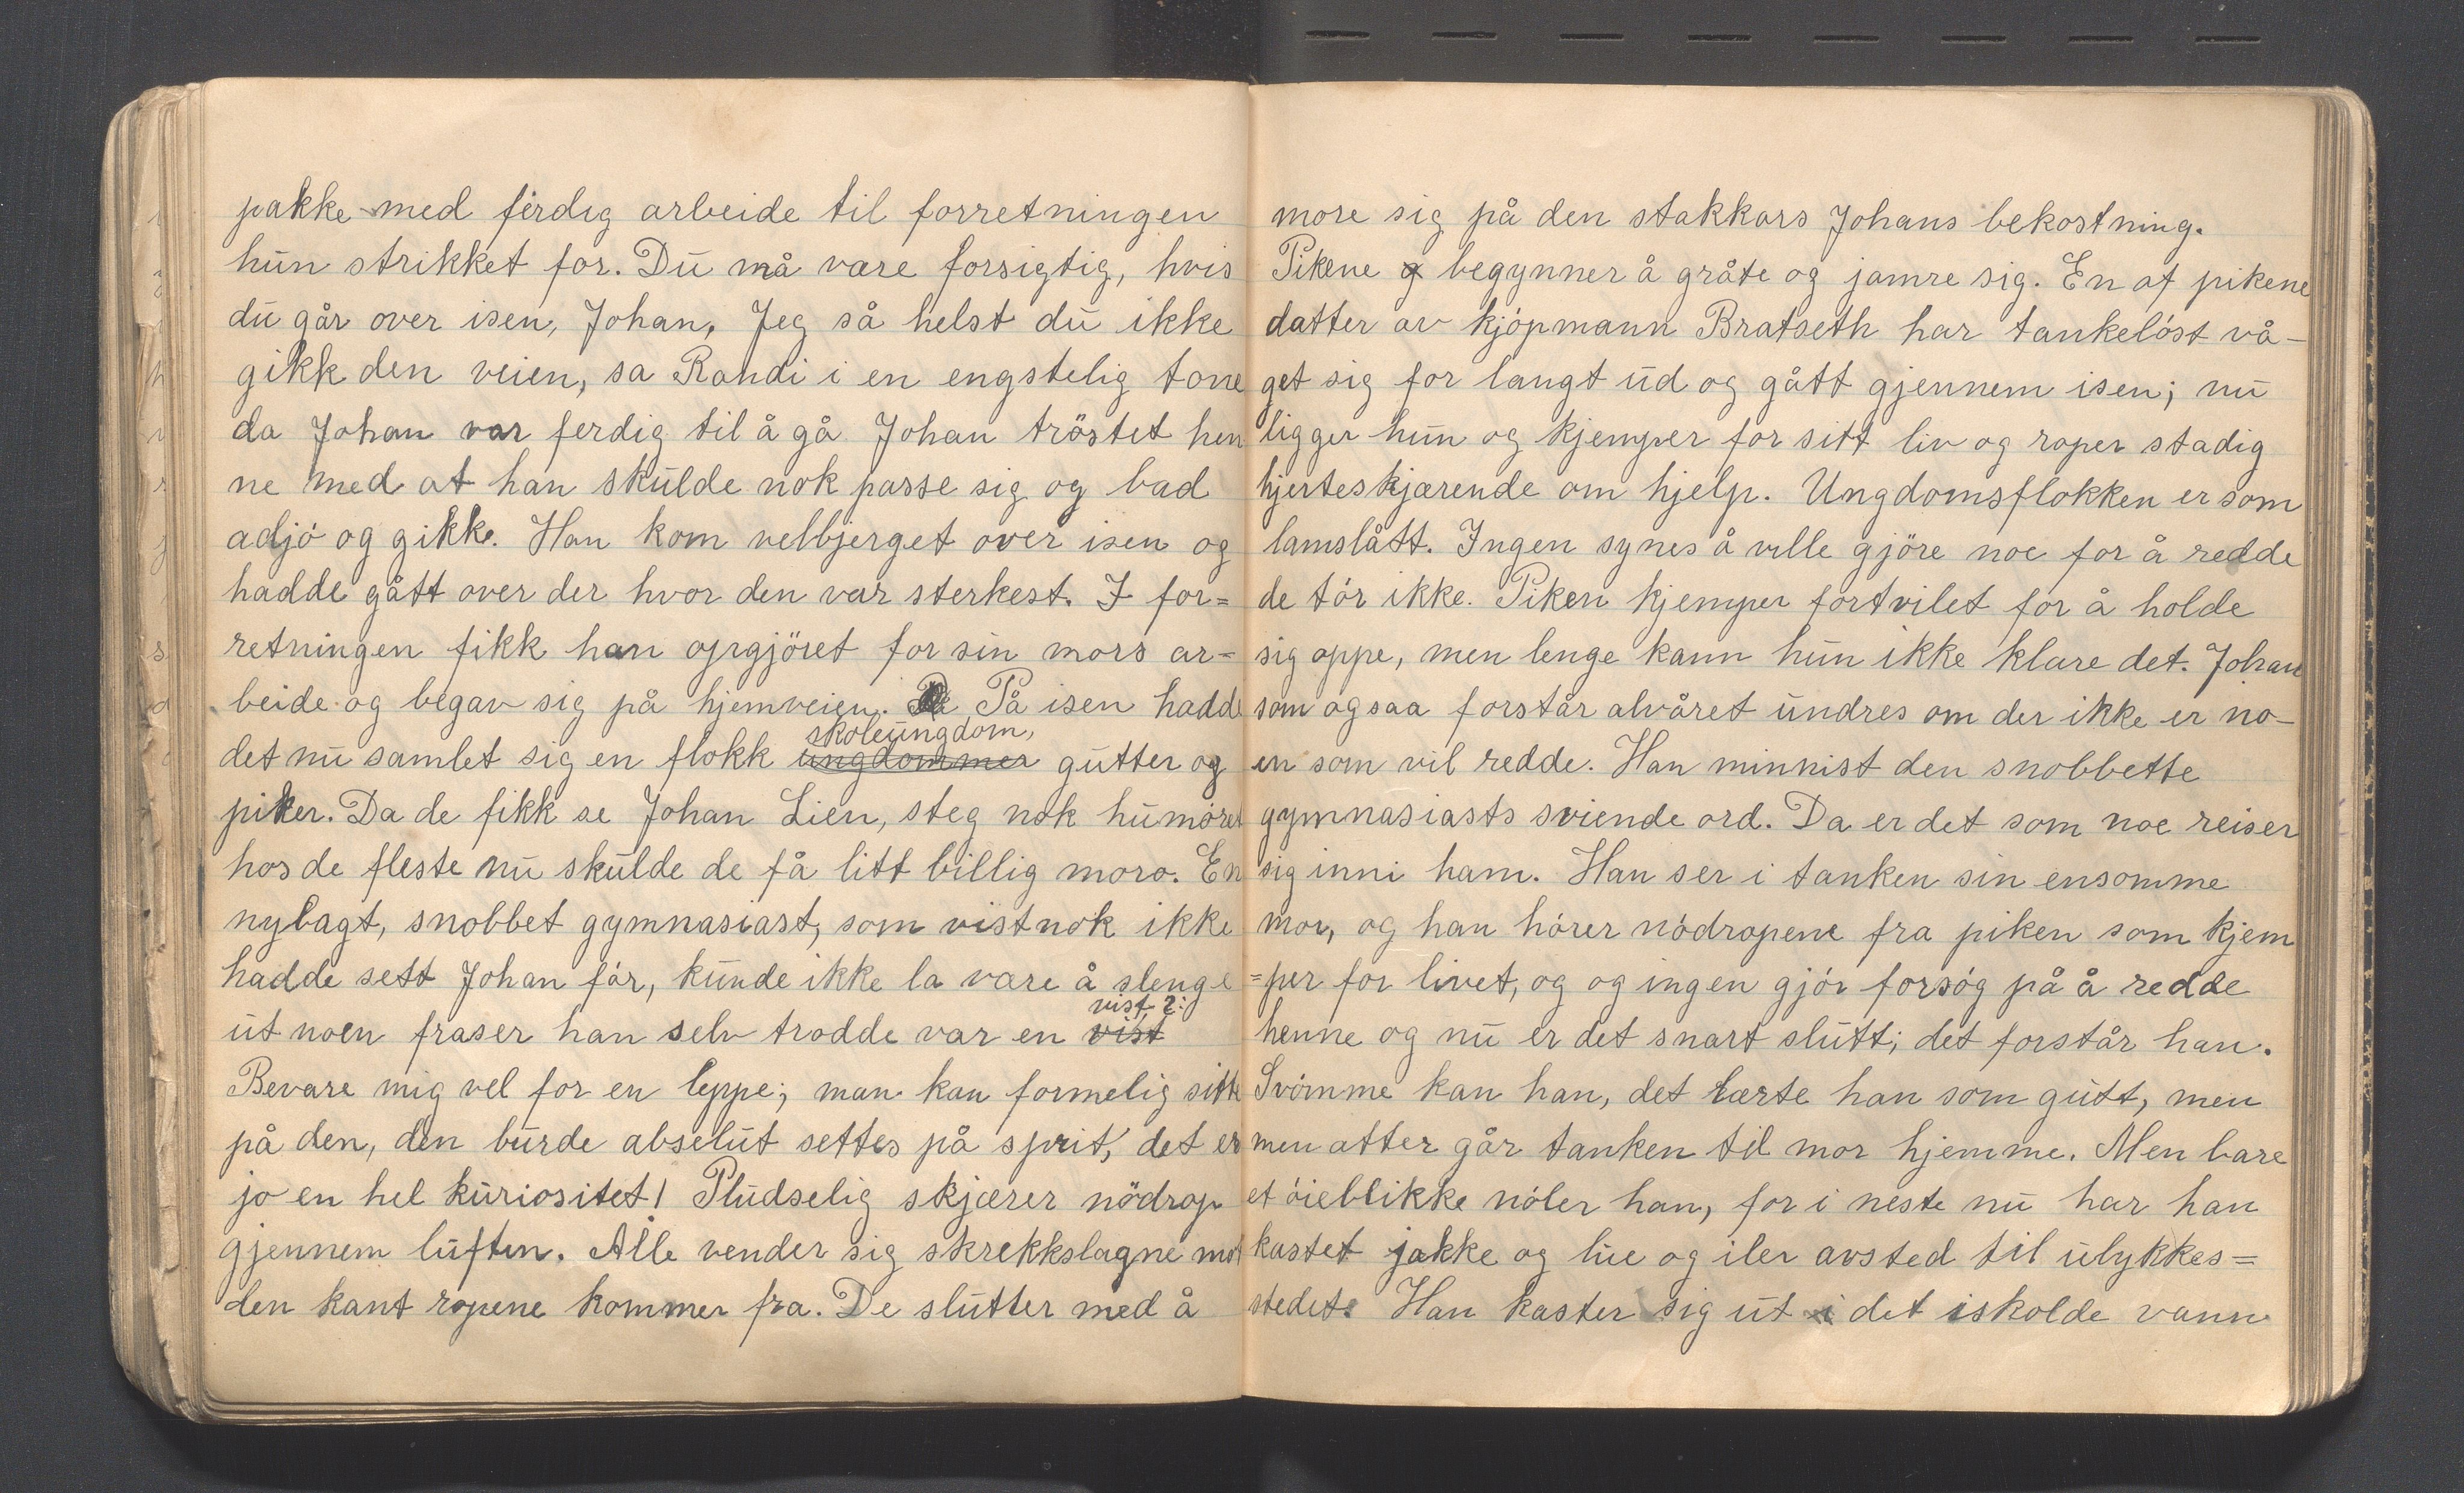 pakke med ferdig arbeide til forretningen
hun strikket for. Du må være forsigtig, hvis
du går over isen, Johan, Jeg så helst du ikke
gikk den veien, sa Randi i en engstelig tone
da Johan var ferdig til å gå Johan tröstet hen
ne med at han skulde nok passe sig og bad
adjö og gikk. Han kom velbjerget over isen og
hadde gått over der hvor den var sterkest. I for=
retningen fikk han opgjöret for sin mors ar=
beide og begav sig på hjemveien. På isen hadde
skoleungdom,
det nu samlet sig en flokk ungdommer gutter og
piker. Da de fikk se Johan Lien, steg nok humöret
hos de fleste nu skulde de få litt billig moro. En
nybagt, snobbet gymnasiast, som vistnok ikke
hadde sett Johan för, kunde ikke la være å slenge
vist 2:
ut noen fraser han selv trodde var en vist
Bevare mig vel for en leppe; man kan formelig sitte
på den, den burde abselut settes på sprit, det er
jo en hel kuriositet! Pludselig skjærer nödrop
gjennem luften. Alle vender sig skrekkslagne mot
den kant ropene kommer fra. De slutter med å
more sig på den stakkars Johans bekostning.
Pikene begynner å gråte og jamre sig. En af pikene
datter av kjöpmann Bratseth har tankelöst vå-
get sig for langt ud og gått gjennem isen; nu
ligger hun og kjemper for sitt liv og roper stadig
hjerteskjærende om hjelp. Ungdomsflokken er som
lamslått. Ingen synes å ville gjöre noe for å redde
de tör ikke. Piken kjemper fortvilet for å holde
sig oppe, men lenge kann hun ikke klare det. Johan
som ogsaa forstår alvåret undres om der ikke er no-
en som vil redde. Han minnist den snobbette
gymnasiasts sviende ord. Da er det som noe reiser
sig inni ham. Han ser i tanken sin ensomme
mor, og han hörer nödropene fra piken som kjem
=per for livet, og og ingen gjör forsög på å redde
henne og nu er det snart slutt; det forstår han.
Svömme kan han, det lærte han som gutt, men
men atter går tanken til mor hjemme. Men bare
et öieblikke nöler han, for i neste nu har han
kastet jakke og lue og iler avsted til ulykkes=
stedet. Han kaster sig ut i det iskolde vann